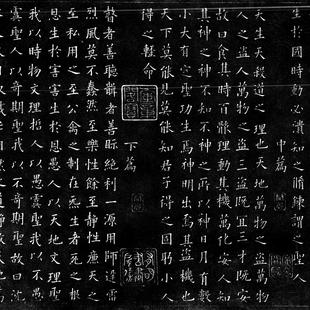 生於國時動必潰知之脩陳謂之聖人
中篇
天生天殺道之理也天地萬物之盜萬物
人之盜人萬物之盜三盜既宜三才既安
故曰食其時百骸理動其機萬化安人知
其神之神不知不神之所以神日月有數
小大有定聖功生焉神明出焉其盜機也
天下莫能見莫能知君子得之固躬小人
得之輕命
下篇
瞽者善聽聾者善眎絕利一源用師
烈風莫不蠢然至樂性餘至靜性廉天之
至私用之至公禽之制在炁生者死之根
恩生於害害生於恩愚人以天地文理聖
我以時物文理哲人以愚虞聖我以不愚
虞聖人以奇期聖我以不奇期聖故曰沈